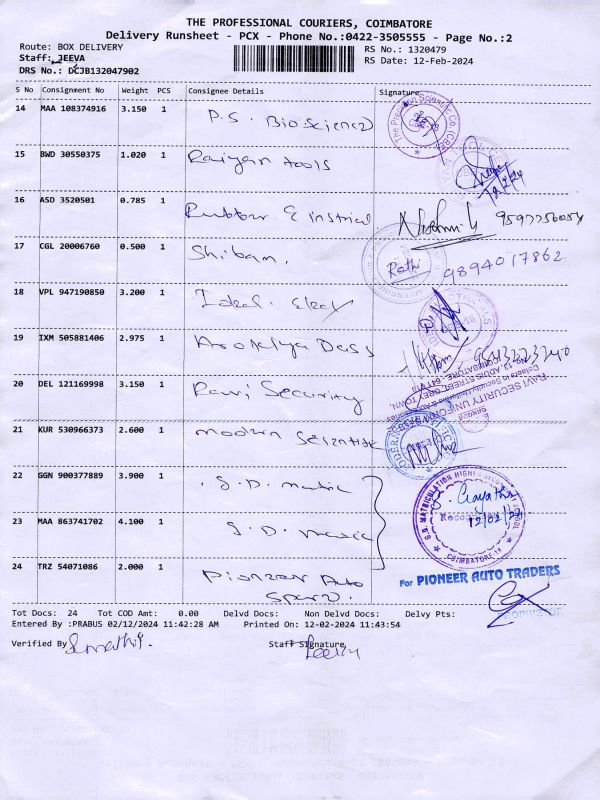 THE PROFESSIONAL COURIERS, COIMBATORE
Delivery Runsheet - PCX - Phone No.:0422-3505555 - Page No.:2
Route: BOX DELIVERY
RS No.: 1320479
Staff: JEEVA
RS Date: 12-Feb-2024
DRS No.: DCJB132047902
S No Consignment No Weight PCS Consignee Details Signature
14 MAA 108374916 3.150 1 P.S. Bioscience
The Precision Scientific Co. (CBE)
15 BWD 30550375 1.020 1 Raiyan tools
12/2/24
16 ASD 3520501 0.785 1 Rubber E Instrial
9597756054
17 CGL 20006760 0.500 1 Shibam.
Rathi 9894017862
18 VPL 947190850 3.200 1 Ideal. Elex
19 IXM 505881406 2.975 1 Dass
RAVI SECURITY UNIFORM
COIMBATORE
20 DEL 121169998 3.150 1 Ravi Security
21 KUR 530966373 2.600 1 modern Scientific
22 GGN 900377889 3.900 1 G.D. matric
G.D. MATRICULATION HIGHER SCHOOL
Gayathri
12/02/24
COIMBATORE-18
23 MAA 863741702 4.100 1 G.D. matric
24 TRZ 54071086 2.000 1 Pioneer Auto
Spares.
For PIONEER AUTO TRADERS
Tot Docs: 24 Tot COD Amt: 0.00 Delvd Docs: Non Delvd Docs: Delvy Pts:
Entered By :PRABUS 02/12/2024 11:42:28 AM Printed On: 12-02-2024 11:43:54
Verified By Sumathi. Staff Signature